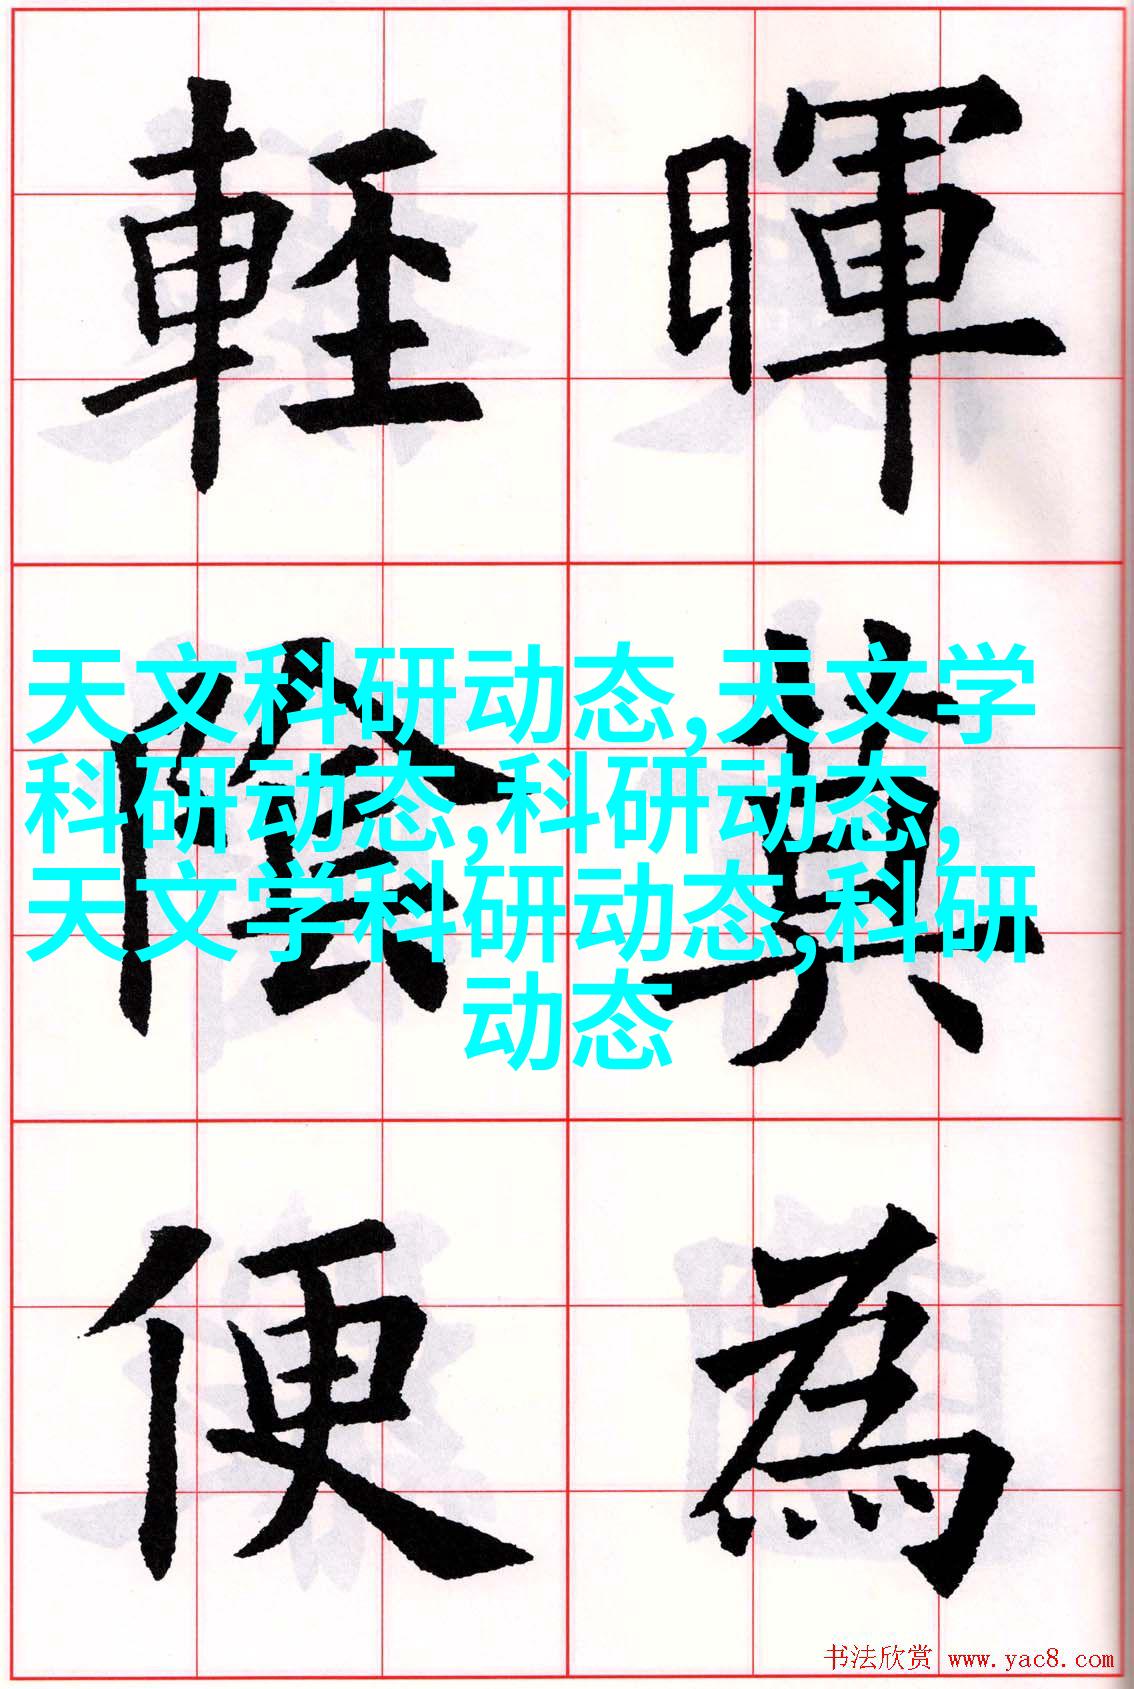 暉莫為
輕陰便
天文科研动态,天文学
科研动态,科研动态,
天文学科研动态,科研
动态
书法欣赏 www.yac8.com